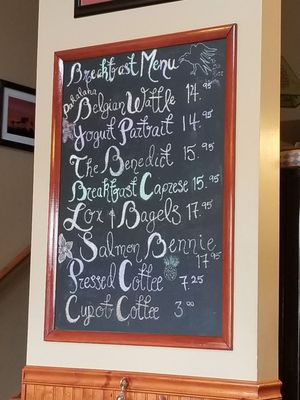 Breakfast Menu
Pakalana
Belgian Waffle 14.95
Yogurt Parfait 14.95
The Benedict 15.95
Breakfast Caprese 15.95
Lox & Bagels 17.95
Salmon Bennie 17.95
Pressed Coffee 7.25
Cup of Coffee 3.00